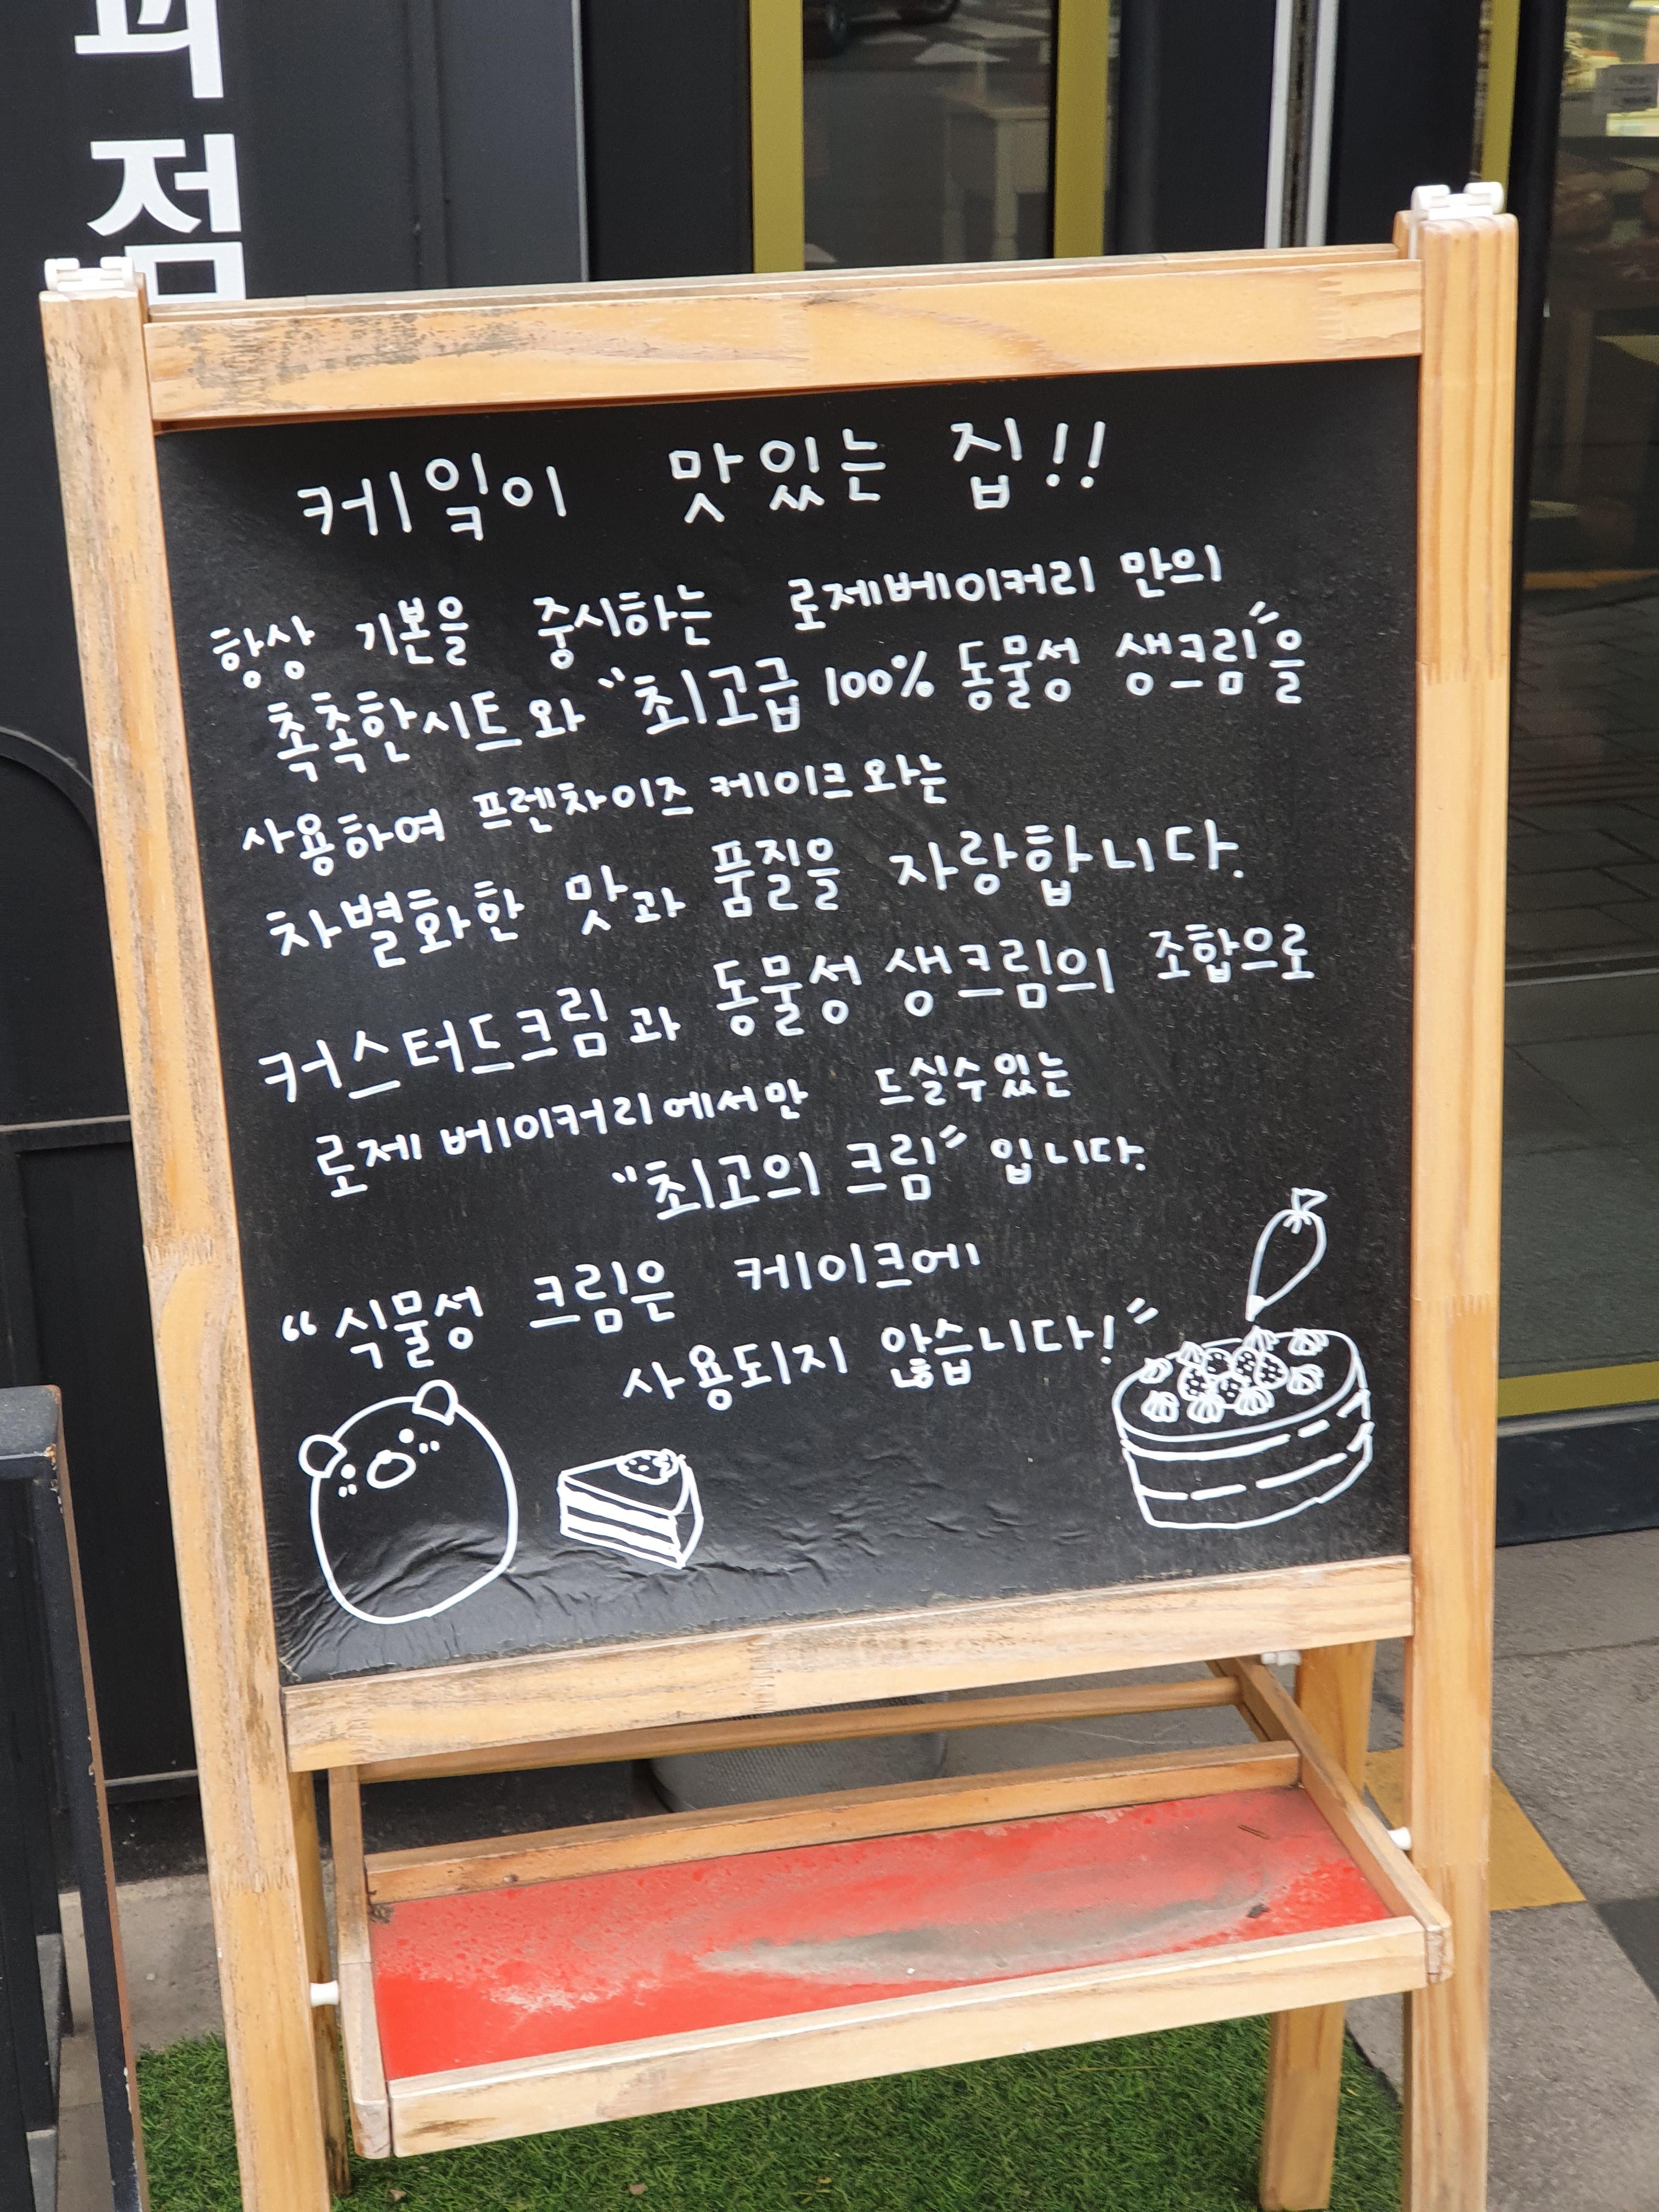 점
케익이 맛있는 집!!
항상 기본을 중시하는 로제베이커리 만의
촉촉한시트와 "최고급 100% 동물성 생크림"을
사용하여 프렌차이즈 케이크와는
차별화한 맛과 품질을 자랑합니다.
커스터드크림과 동물성 생크림의 조합으로
로제 베이커리에서만 드실수있는
"최고의 크림" 입니다.
"식물성 크림은 케이크에
사용되지 않습니다!"